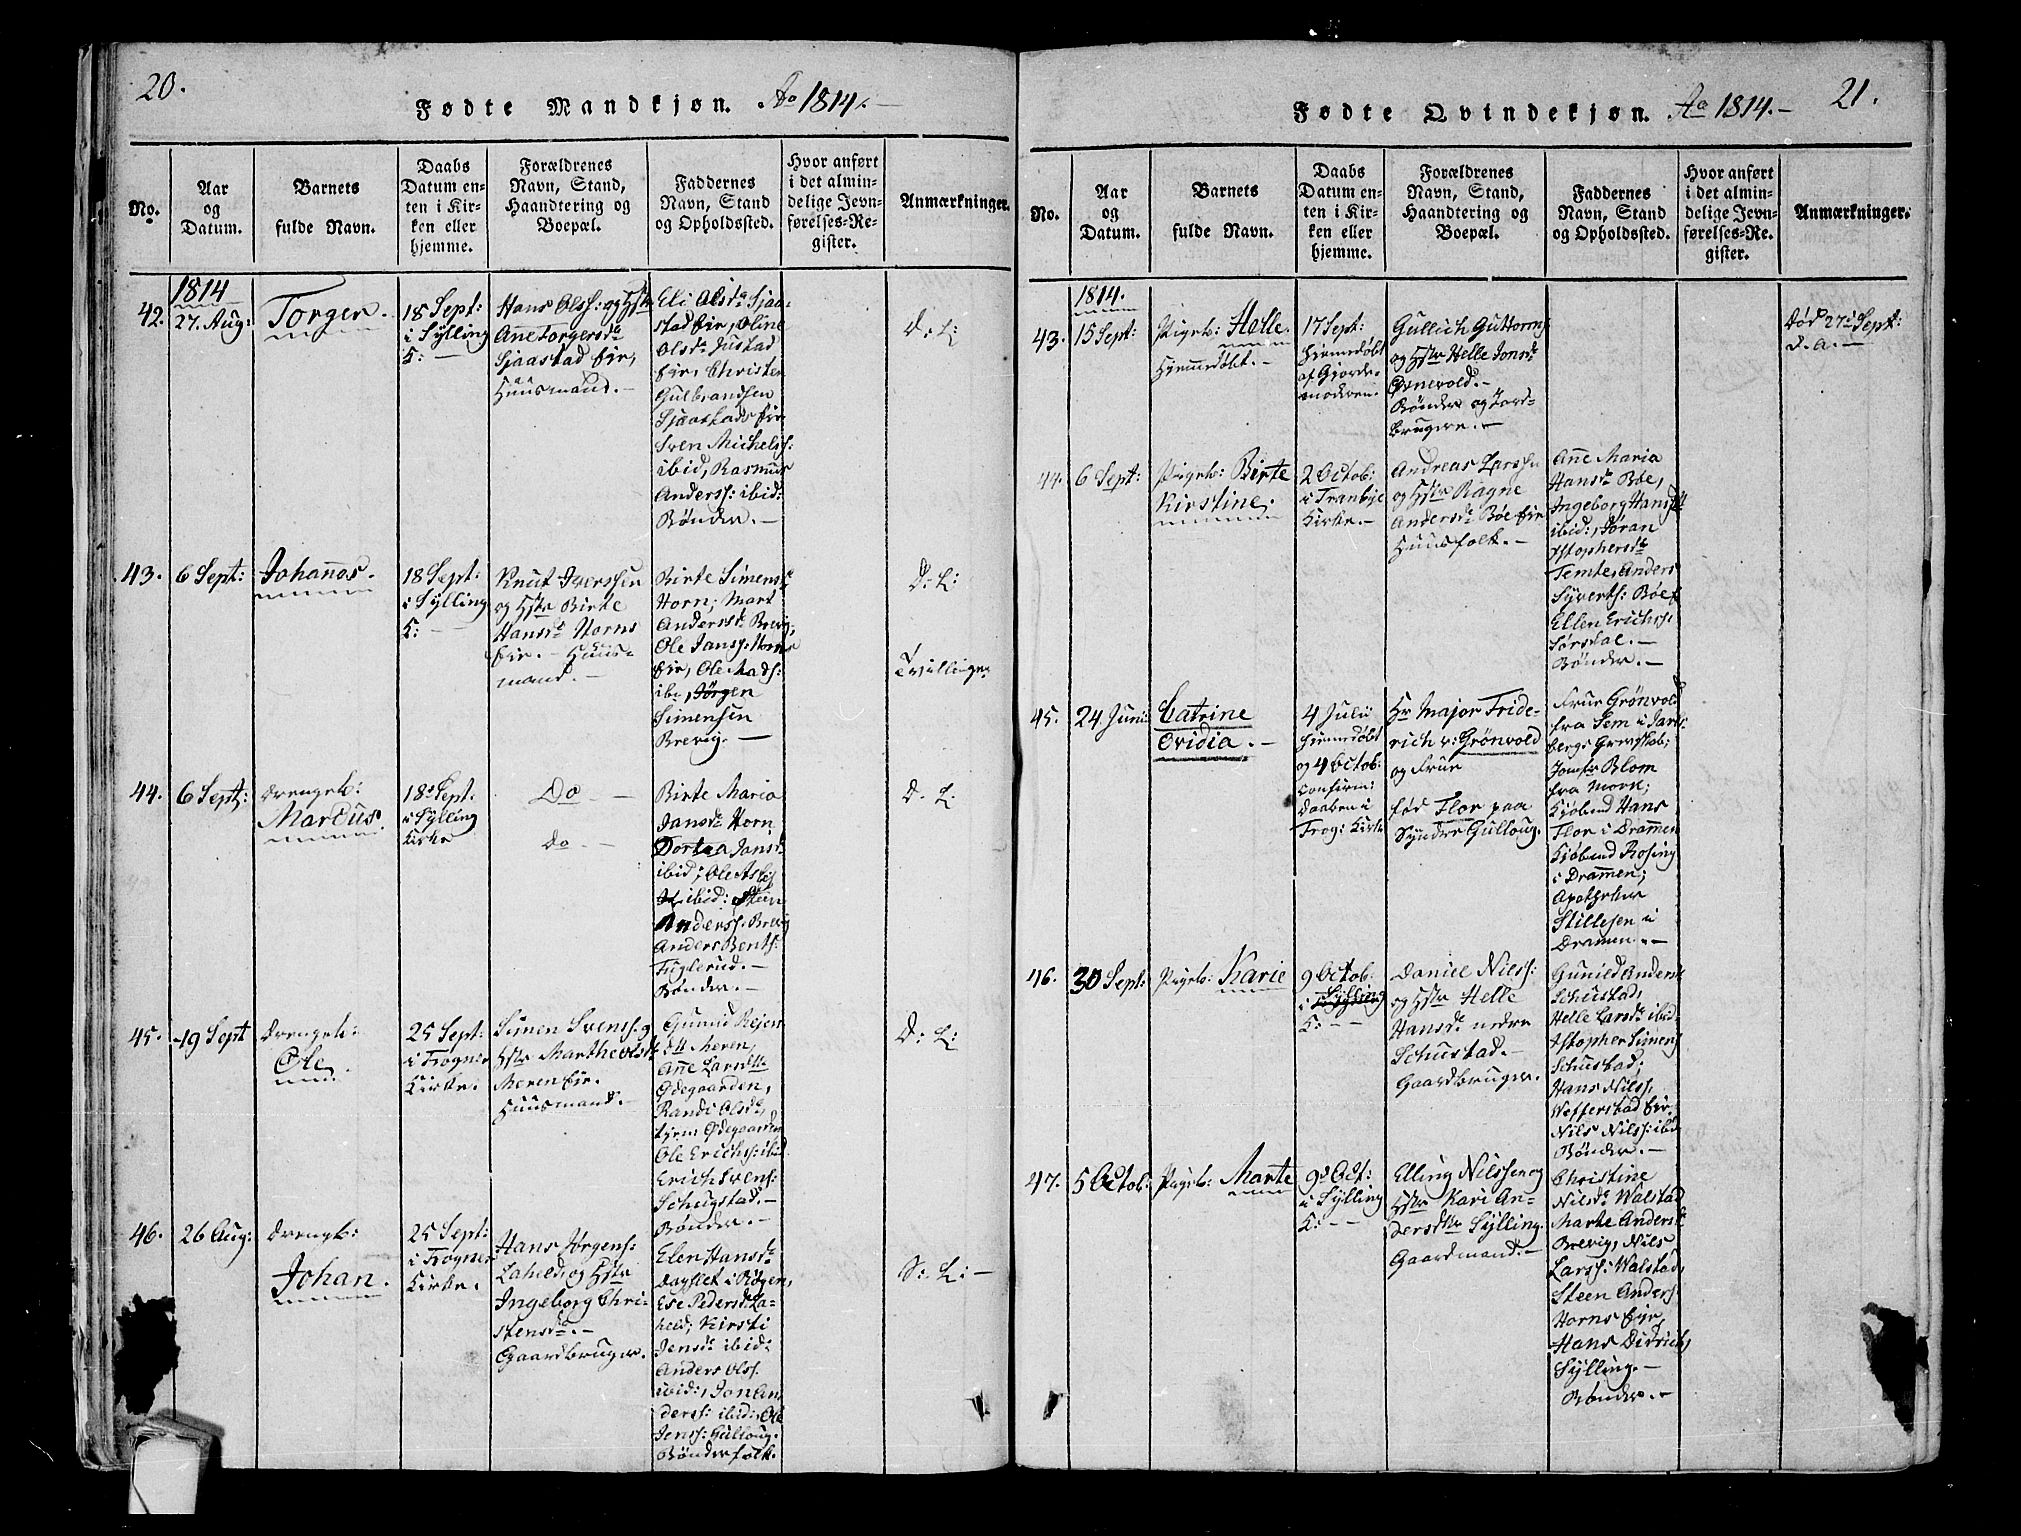 20.
Fødte Mandkjøn. Ao 1814.
No.
Aar
og
Datum.
Barnets
fulde Navn.
Daabs
Datum en-
ten i Kir-
ken eller
hjemme.
Forældrenes
Navn, Stand,
Haandtering og
Boepæl.
Faddernes
Navn, Stand
og Opholdssted.
Hvor anført
i det almin-
delige Jevn-
førelses-Re-
gister.
Anmærkninger.
1814
42.
27. Aug:
Torger.
18 Sept:
i Sylling
K:
Hans Olss: og Hstr
Anne Torgersdr
Sjaastad Eie,
Huusmand.
Eli Olsdr Sjaa-
stad Eie, Oline
Olsdr Justad
Eie, Christen
Gulbrandsen
Sjaastads Eie
Sven Michelss:
ibid, Rasmus
Anderss: ibid:
Bønder.
D: L:
43.
6 Sept:
Johannes.
18 Sept:
i Sylling
K:
Knut Iverssen
og Hstr Birte
Hansdr Horns
Eie. Huus-
mand.
Birte Simensdr
Horn; Mart
Andersdr Brevig,
Ole Janss: Horns
Eie, Ole Mads:
ibi, Jørgen
Simensen
Brevig.
D: L:
Tvillinger
44.
6 Sept:
Drengeb:
Marcus.
18d Sept.
i Sylling
Kirke
Do
Do
Birte Maria
Jansdr Horn,
Dortea Jansdr
ibid; Ole
ibid: Steen
Anderss: Brevig
Anders Bents:
Fuglerud.
Bønder.
D. L:
45.
19 Sept
Drengeb:
Ole
25 Sept:
i Frogner
Kirke.
Simen Svenss: og
Hstr Marthe Olsdtr
Meren Eie.
Huusmand.
Gunild
Meren,
Anne Larsdtr
Ødegaarden,
Randi Olsdr
Ødegaarden
Ole Erichs: ibid
Erich Svens:
Schugstad.
Bønder.
D: L:
46.
26 Aug:
Drengb:
Johan.
25 Sept:
i Frogner
Kirke.
Hans Jørgens:
Laheld, og Hstr
Ingeborg Chri-
stensdr.
Gaardbruger.
Elen Hansdr
Dagslet i Røgen,
Ese Pedersd: La-
held; Kirsti
Jensdr ibid:
Anders Olss:
ibid:, Jon An
derss: ibid:, Ole
Jenss: Gulloug.
Bønderfolk.
S: L:
21.
Fødte Qvindekjøn. Ao 1814.
No.
Aar
og
Datum.
Barnets
fulde Navn.
Daabs
Datum en-
ten i Kir-
ken eller
hjemme.
Forældrenes
Navn, Stand,
Haandtering og
Boepæl.
Faddernes
Navn, Stand
og Opholdssted.
Hvor anført
i det almin-
delige Jevn-
førelses-Re-
gister.
Anmærkninger.
1814.
43.
15 Sept:
Pigeb: Helle.
Hjemmedøbt.
17 Sept:
Hjemmedøbt
af Gjorde-
moderen.
Gullich Guttorms
og Hstr Helle Jonsdr
Ornevold.
Bønder og Jord-
brugere.
død 27d Sept:
d. a.
44.
6 Sept:
Pigeb: Birte
Kirstine.
2 Octob:
i Tranbye
Kirke.
Andreas Larssen
og Hstr Ragne
Andersdr Bøe Eie
Huusfolk.
Anne Maria
Hansdr Bøe,
Ingeborg Hansdtr
ibid:, Joran
Temte, Anders
Syverts: Bøe
Ellen Erichss:
Sørsdal.
Bønder.
45.
24. Juni:
Catrine
Ovidia.
4 Julii
Hjemmedøbt
og 4 Octob:
confirm:
Daaben i
Frog: Kirke
Hr Major Fride-
rich v: Grönvold
og Frue
fød Flor paa
Syndre Gulloug.
Frue Grönvold
fra Sem i Jarls
bergs Grevskab;
Jomfr Blom
fra
Kjøbmd Hans
Flor i Drammen
Kjøbmd Rosing
i Drammen;
Apotheker
Stillesen i
Dramen.
46.
30 Sept:
Pigeb: Karie
9 Octob:
i Sylling
K:
Daniel Nilss:
og Hstr Helle
Hansdr nedre
Schustad.
Gaardbruger.
Gunild Andersdr
Schustad,
Helle Larsdr ibid
Schustad;
Hans Nilss,
Wefferstad Eie.
Nils Nilss: ibid
Bønder.
47.
5 Octob:
Pigeb: Marte
9d Oct:
i Sylling
K:
Elling Nilssen og
Hstr Kari An-
dersdtr Sylling.
Gaardmand.
Christine
Nilsdr Walstad
Marte Andersdr
Brevig, Nils
Larss: Walstad,
Steen Anders:
Horns Eie,
Hans Didrich,
Sylling.
Bønder.